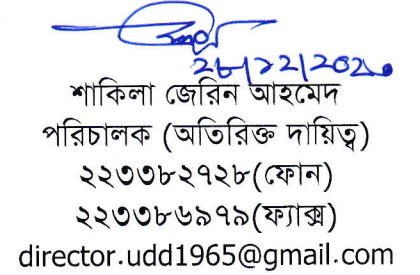 ২৮/১২/২০২০
শাকিলা জেরিন আহমেদ
পরিচালক (অতিরিক্ত দায়িত্ব)
২২৩৩৮২৭২৮(ফোন)
২২৩৩৮৬৯৭৯(ফ্যাক্স)
director.udd1965@gmail.com